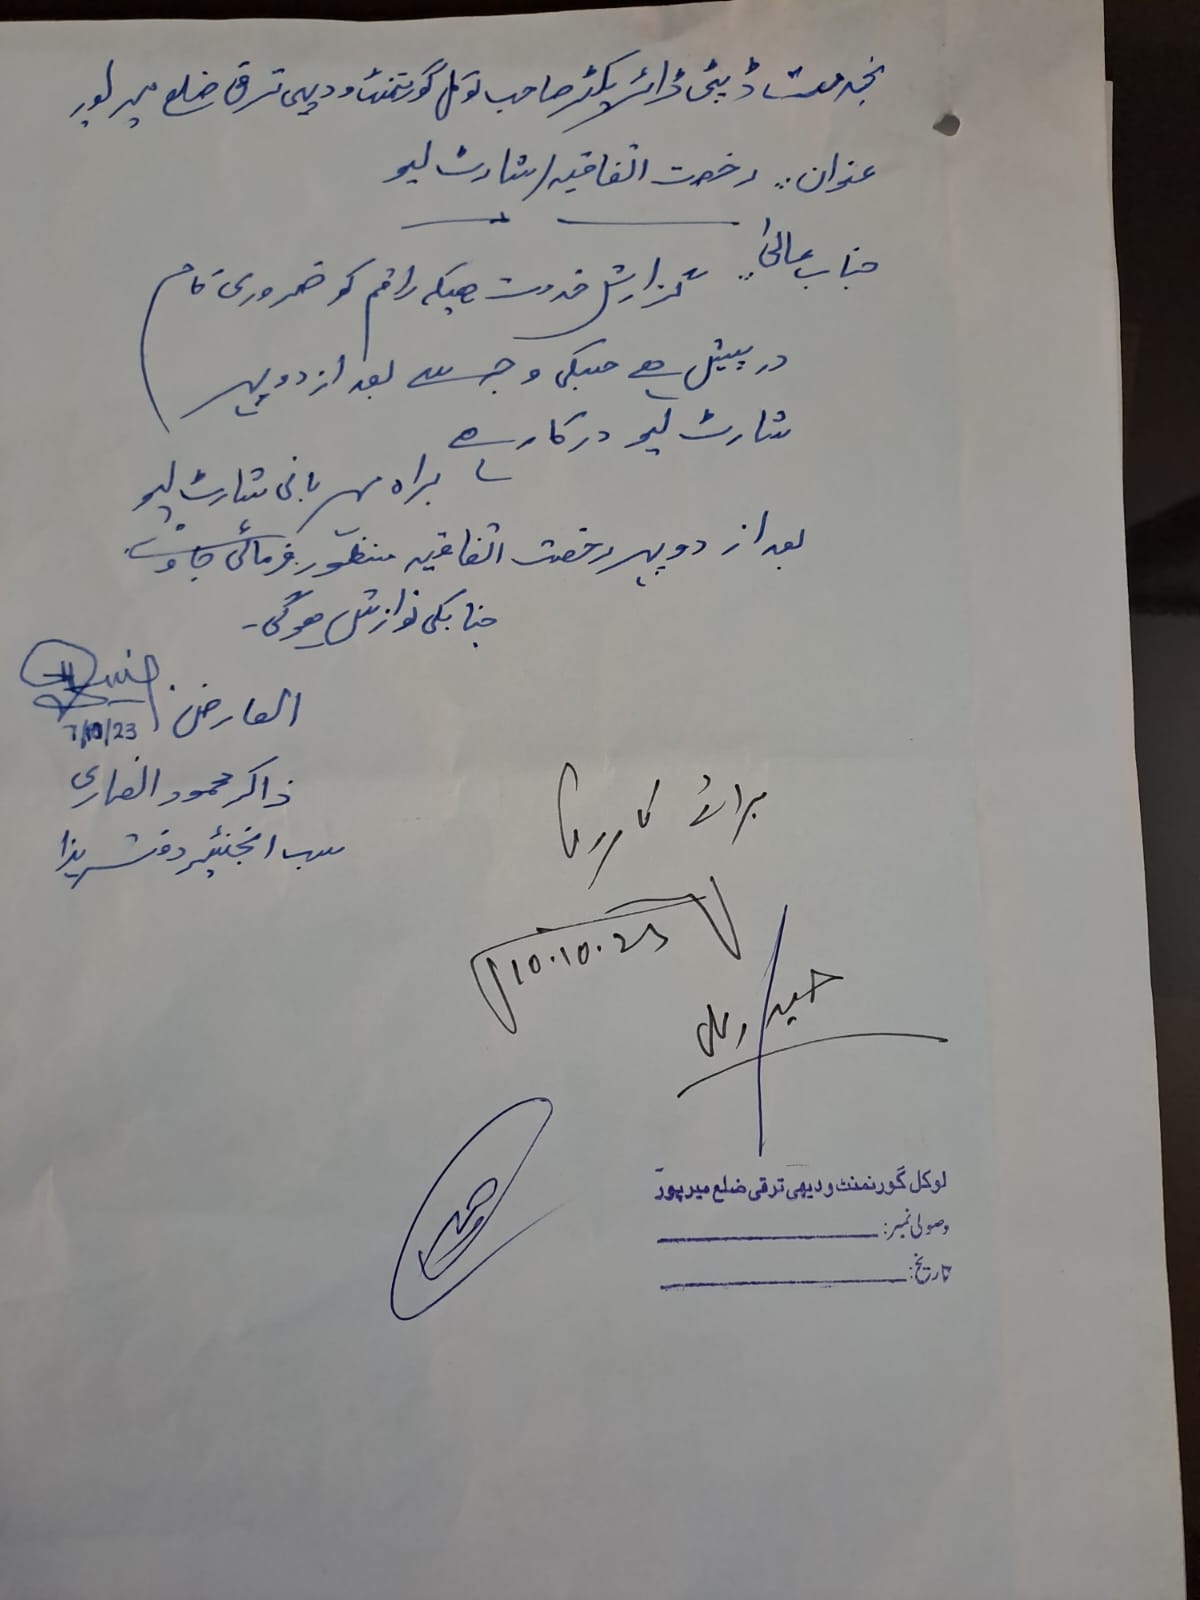 بخدمت ڈپٹی ڈائریکٹر صاحب لوکل گورنمنٹ ودیہی ترقی ضلع میرپور
عنوان:۔ رخصت اتفاقیہ/شارٹ لیو
جناب عالیٰ:۔ گزارش خدمت ھیکہ راقم کو ضروری کام
درپیش ھے جسکی وجہ سے بعد از دوپہر
شارٹ لیو درکار ھے
براہ مہربانی شارٹ لیو
بعد از دوپہر رخصت اتفاقیہ منظور فرمائی جاوے
جنابکی نوازش ھوگی۔
العارض
7/10/23
ذاکر محمود انصاری
سب انجنیئر دفتر ہذا
برائے کاروائی
10.10.23
لوکل گورنمنٹ ودیہی ترقی ضلع میرپور
وصولی نمبر:
تاریخ: